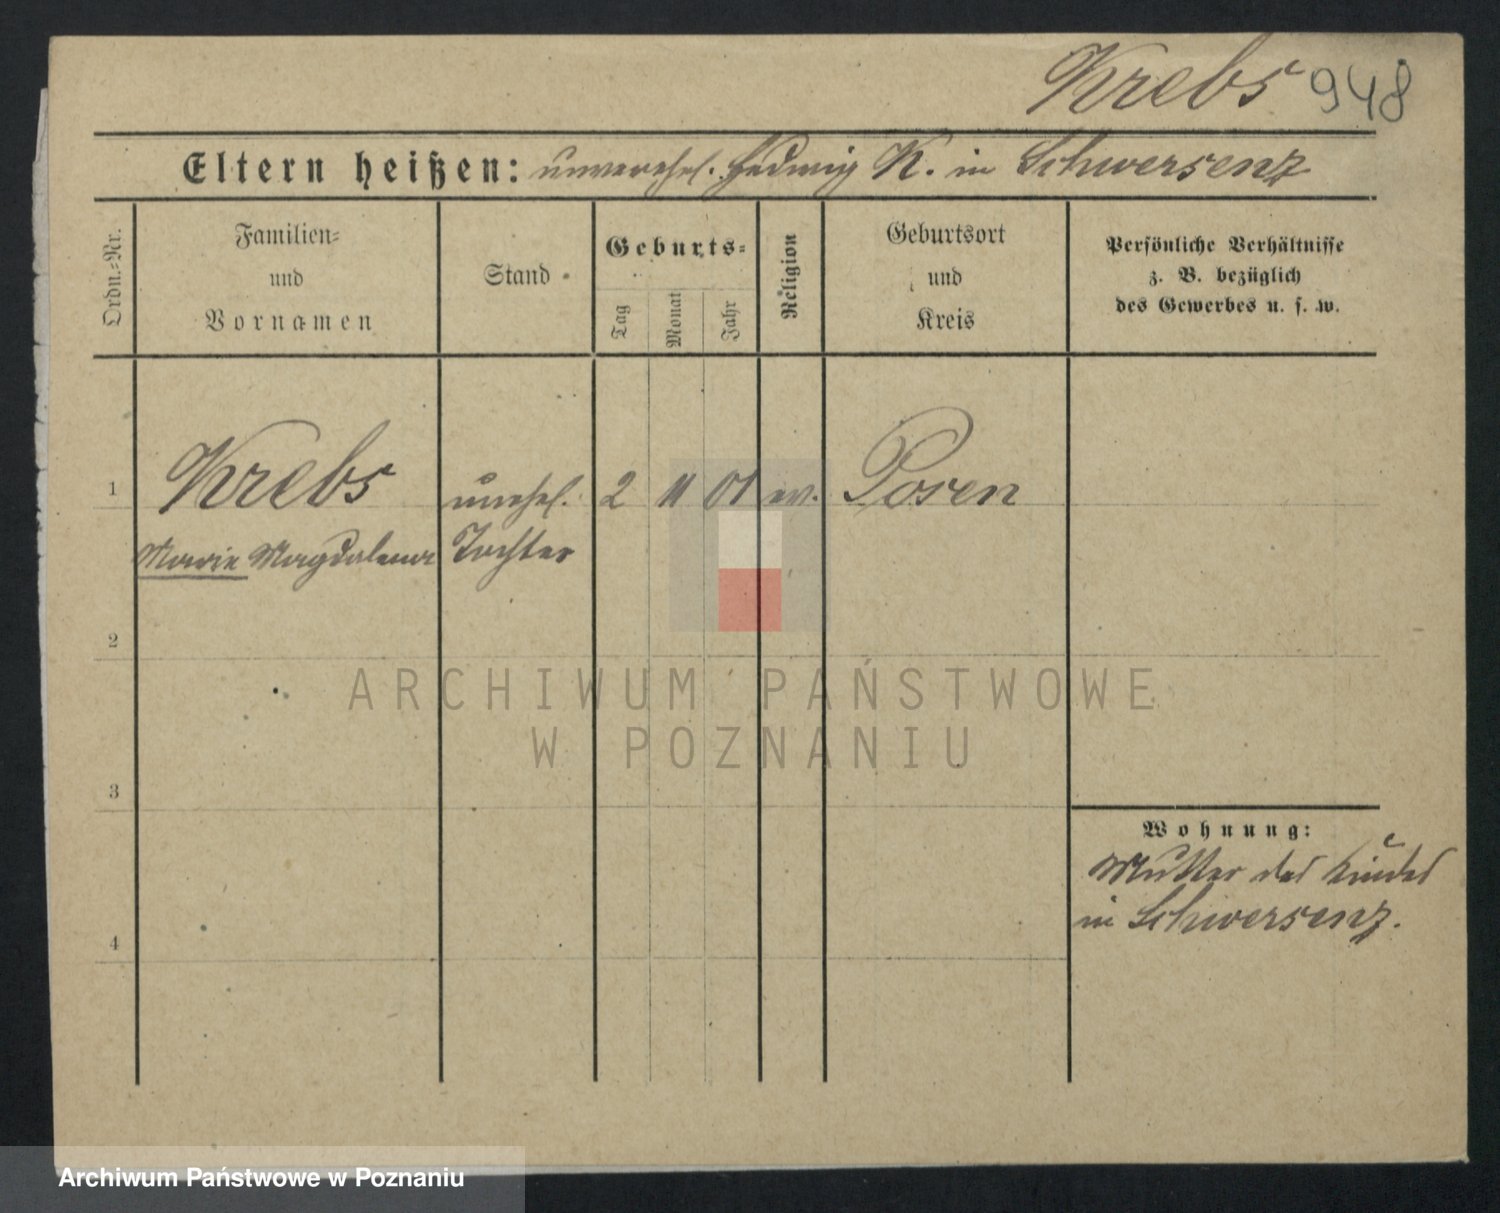 Krebs 948
Eltern heißen: unverehel. Hedwig K. in Schwersenz
Ordn.-Nr.
Familien-
und
Vornamen
Stand
Geburts-
Tag
Monat
Jahr
Religion
Geburtsort
und
Kreis
Persönliche Verhältnisse
z. B. bezüglich
des Gewerbes u. s. w.
1 Krebs unehel. 2 11 01 ev. Posen
Marie Magdalena Tochter
2
ARCHIWUM PAŃSTWOWE
W POZNANIU
3
Wohnung:
Mutter des Kindes
in Schwersenz.
4
Archiwum Państwowe w Poznaniu